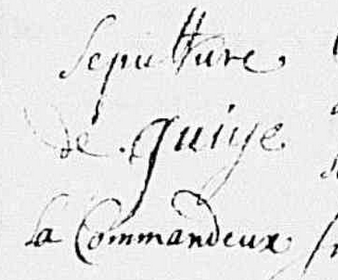 Sepulture
de guiye
la Commandeux